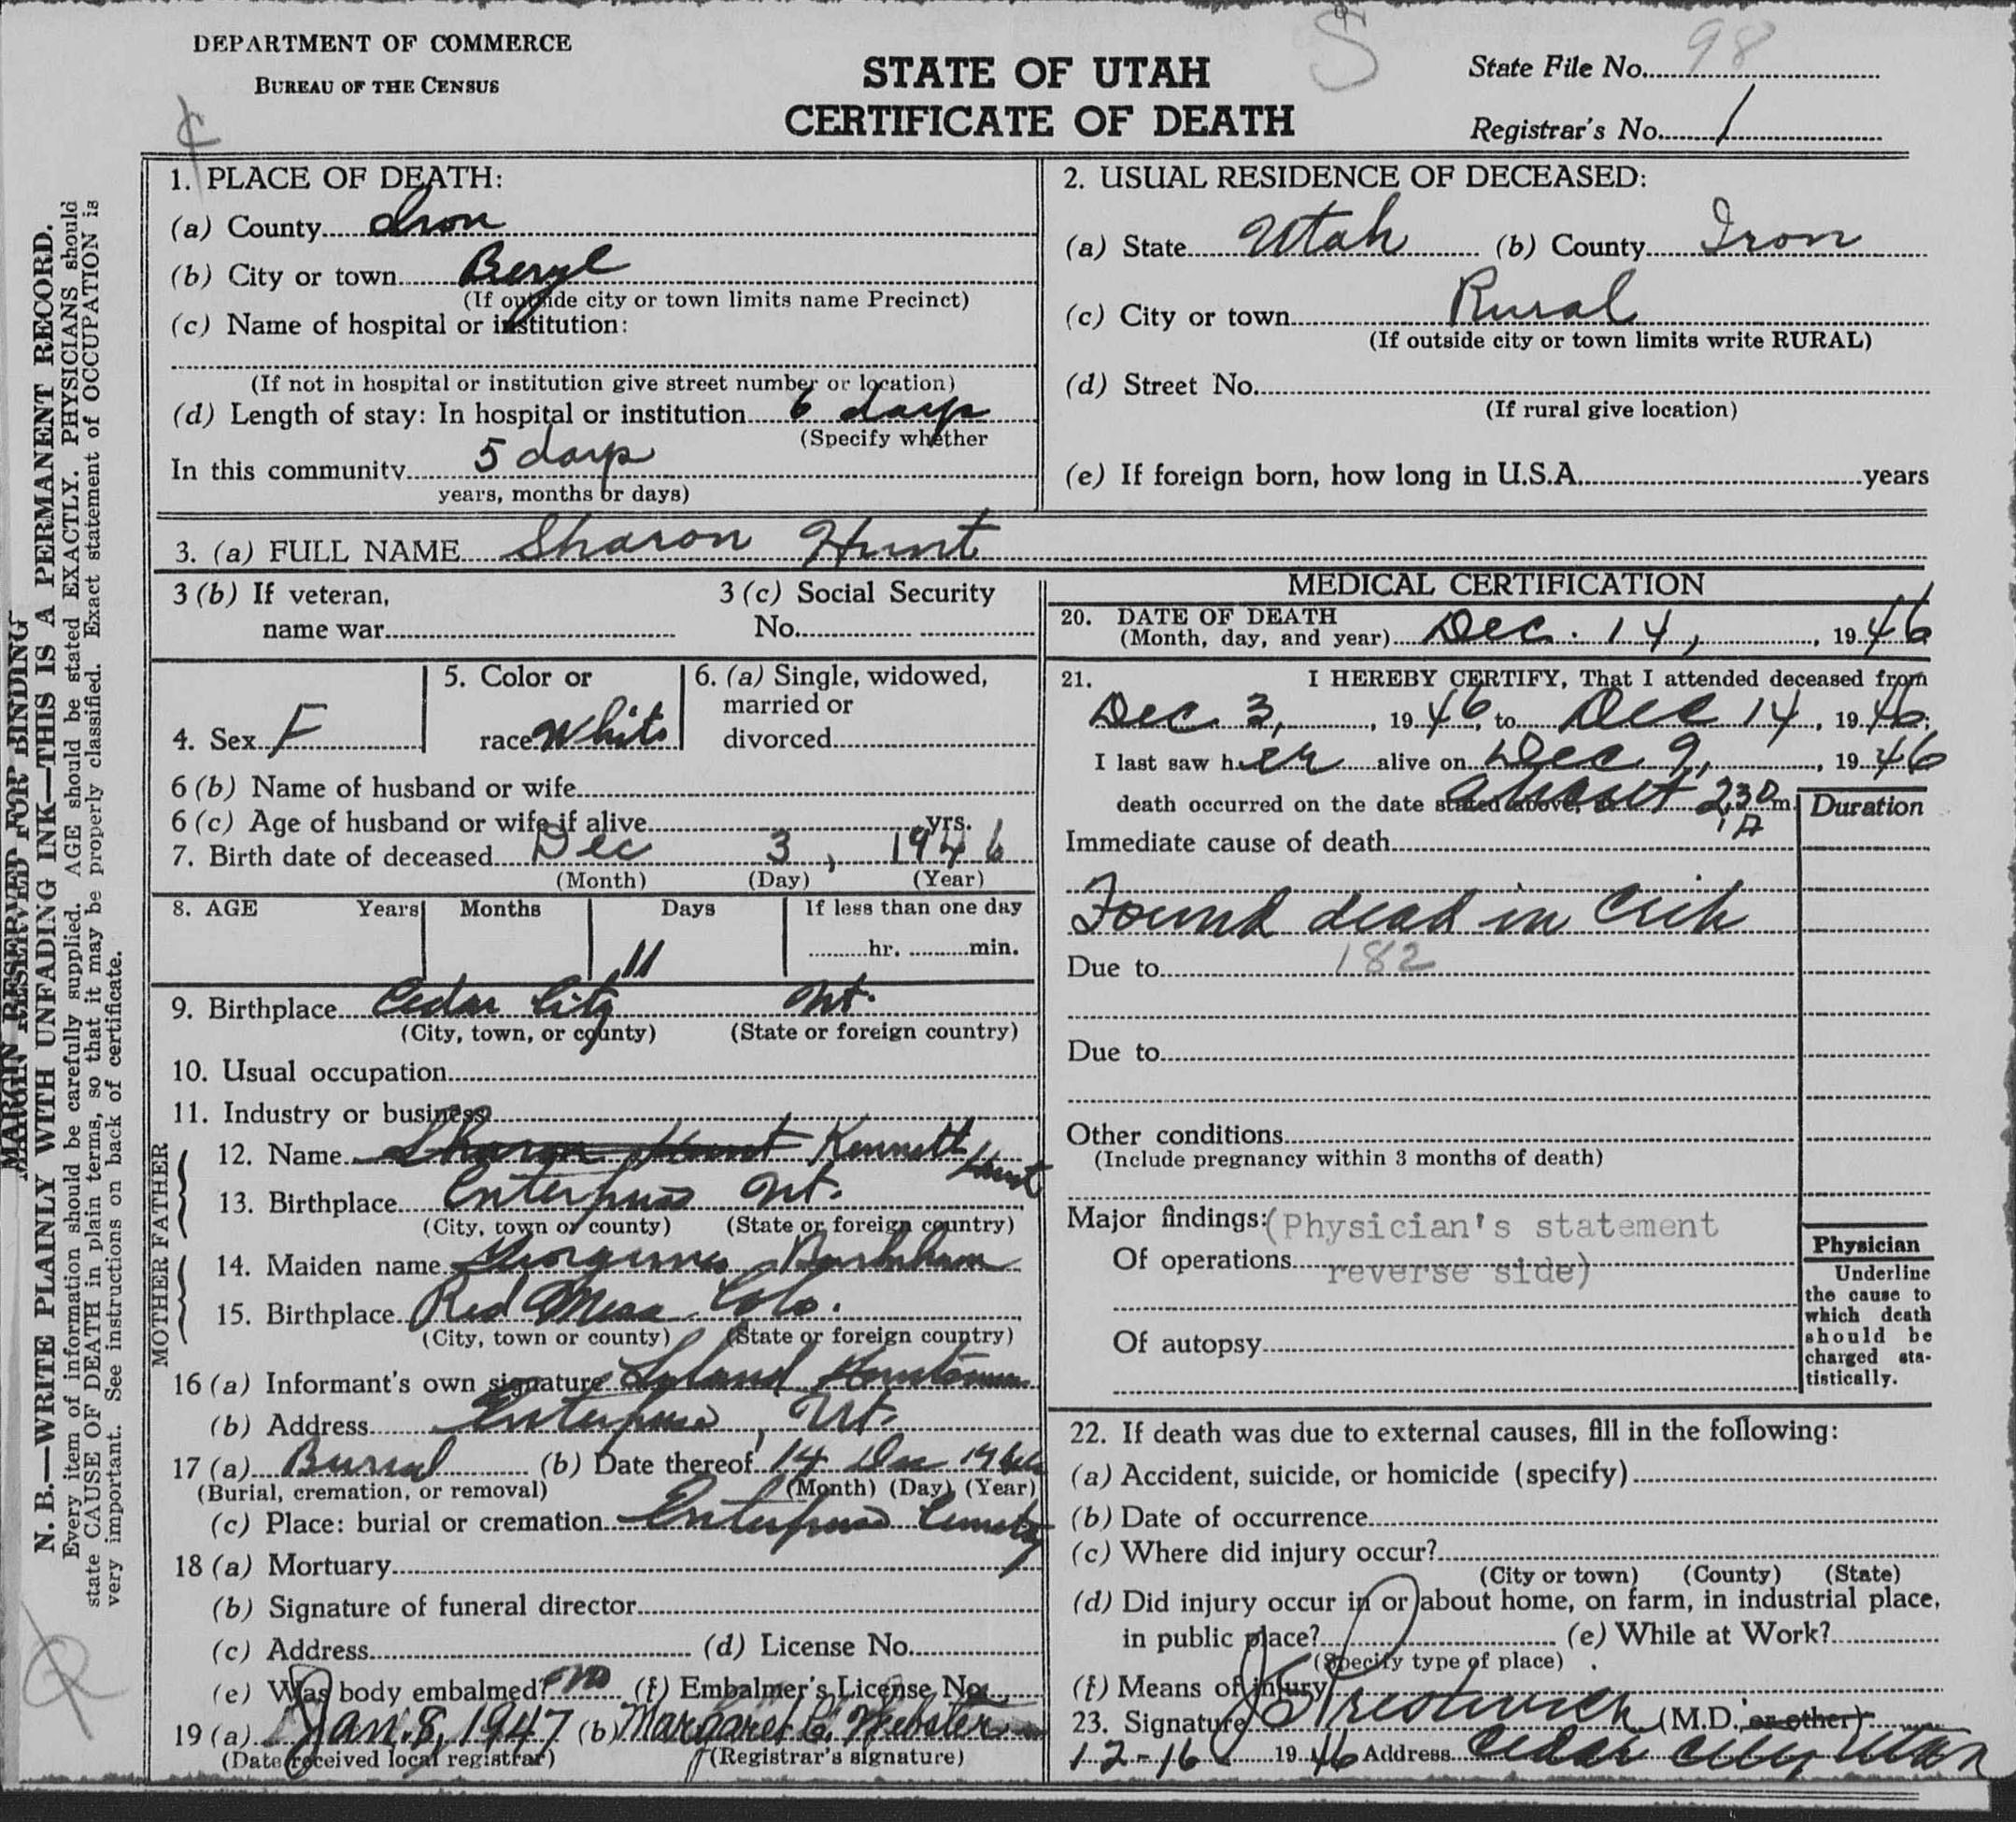 DEPARTMENT OF COMMERCE
BUREAU OF THE CENSUS
STATE OF UTAH
CERTIFICATE OF DEATH
S
State File No. 98
Registrar's No. 1
MARGIN RESERVED FOR BINDING
N. B.—WRITE PLAINLY WITH UNFADING INK—THIS IS A PERMANENT RECORD.
Every item of information should be carefully supplied. AGE should be stated EXACTLY. PHYSICIANS should
state CAUSE OF DEATH in plain terms, so that it may be properly classified. Exact statement of OCCUPATION is
very important. See instructions on back of certificate.
1. PLACE OF DEATH:
(a) County Iron
(b) City or town Beryl
(If outside city or town limits name Precinct)
(c) Name of hospital or institution:
(If not in hospital or institution give street number or location)
(d) Length of stay: In hospital or institution 6 days
(Specify whether
In this community 5 days
years, months or days)
2. USUAL RESIDENCE OF DECEASED:
(a) State Utah (b) County Iron
(c) City or town Rural
(If outside city or town limits write RURAL)
(d) Street No.
(If rural give location)
(e) If foreign born, how long in U.S.A. years
3. (a) FULL NAME Sharon Hunt
3 (b) If veteran,
name war
3 (c) Social Security
No.
4. Sex F
5. Color or
race White
6. (a) Single, widowed,
married or
divorced
6 (b) Name of husband or wife
6 (c) Age of husband or wife if alive yrs.
7. Birth date of deceased Dec 3, 1946
(Month) (Day) (Year)
8. AGE Years Months Days If less than one day
11 hr. min.
9. Birthplace Cedar City Ut.
(City, town, or county) (State or foreign country)
10. Usual occupation
11. Industry or business
FATHER
12. Name Sharon Hunt Kennett Hunt
13. Birthplace Enterprise Ut.
(City, town or county) (State or foreign country)
MOTHER
14. Maiden name
15. Birthplace Red Mesa Colo.
(City, town or county) (State or foreign country)
16 (a) Informant's own signature Leland Huntsman
(b) Address Enterprise, Ut.
17 (a) Burial (b) Date thereof 14 Dec 1946
(Burial, cremation, or removal) (Month) (Day) (Year)
(c) Place: burial or cremation Enterprise Cemetery
18 (a) Mortuary
(b) Signature of funeral director
(c) Address (d) License No.
(e) Was body embalmed? no (f) Embalmer's License No.
19 (a) Jan. 8, 1947 (b) Margaret C. Webster
(Date received local registrar) (Registrar's signature)
MEDICAL CERTIFICATION
20. DATE OF DEATH
(Month, day, and year) Dec. 14, 1946
21. I HEREBY CERTIFY, That I attended deceased from
Dec 3, 1946, to Dec 14, 1946;
I last saw her alive on Dec 9, 1946
death occurred on the date stated above, at about 2:30 A m.
Duration
Immediate cause of death
Found dead in Crib
Due to 182
Due to
Other conditions
(Include pregnancy within 3 months of death)
Major findings: (Physician's statement
Of operations reverse side)
Of autopsy
Physician
Underline
the cause to
which death
should be
charged sta-
tistically.
22. If death was due to external causes, fill in the following:
(a) Accident, suicide, or homicide (specify)
(b) Date of occurrence
(c) Where did injury occur?
(City or town) (County) (State)
(d) Did injury occur in or about home, on farm, in industrial place,
in public place? (e) While at Work?
(Specify type of place)
(f) Means of injury
23. Signature Prestwich (M.D. or other)
12-16 1946 Address Cedar City Utah